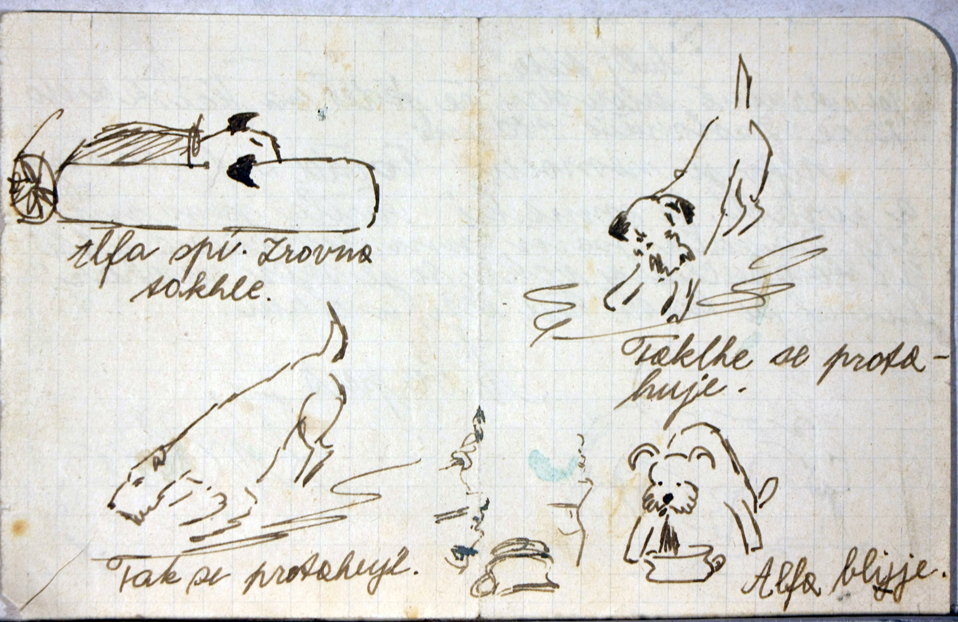 Alfa spí. Zrovna
takhle.
Taklhe se prota-
huje.
Tak se protahuje.
Alfa blije.